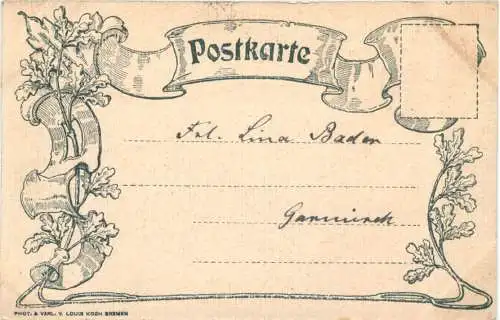 Postkarte
Frl. Lina Bader
Garmisch
PHOT. & VERL. V. LOUIS KOCH BREMEN